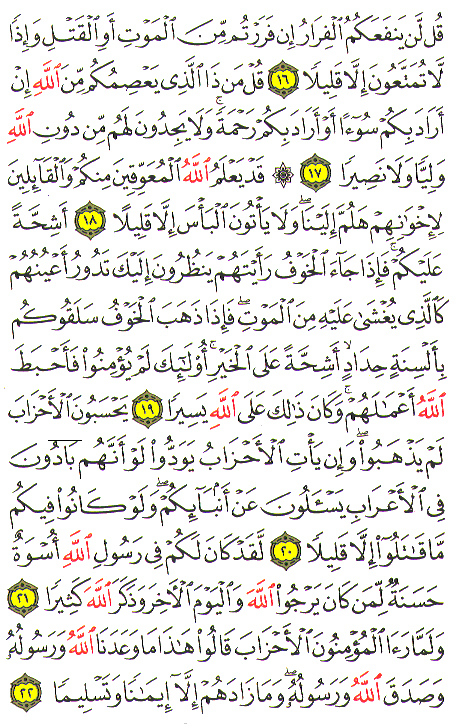 قُل لَّن يَنفَعَكُمُ ٱلۡفِرَارُ إِن فَرَرۡتُم مِّنَ ٱلۡمَوۡتِ أَوِ ٱلۡقَتۡلِ وَإِذٗا
لَّا تُمَتَّعُونَ إِلَّا قَلِيلٗا ١٦ قُلۡ مَن ذَا ٱلَّذِي يَعۡصِمُكُم مِّنَ ٱللَّهِ إِنۡ
أَرَادَ بِكُمۡ سُوٓءًا أَوۡ أَرَادَ بِكُمۡ رَحۡمَةٗۚ وَلَا يَجِدُونَ لَهُم مِّن دُونِ ٱللَّهِ
وَلِيّٗا وَلَا نَصِيرٗا ١٧ ۞ قَدۡ يَعۡلَمُ ٱللَّهُ ٱلۡمُعَوِّقِينَ مِنكُمۡ وَٱلۡقَآئِلِينَ
لِإِخۡوَٰنِهِمۡ هَلُمَّ إِلَيۡنَاۖ وَلَا يَأۡتُونَ ٱلۡبَأۡسَ إِلَّا قَلِيلًا ١٨ أَشِحَّةً
عَلَيۡكُمۡۖ فَإِذَا جَآءَ ٱلۡخَوۡفُ رَأَيۡتَهُمۡ يَنظُرُونَ إِلَيۡكَ تَدُورُ أَعۡيُنُهُمۡ
كَٱلَّذِي يُغۡشَىٰ عَلَيۡهِ مِنَ ٱلۡمَوۡتِۖ فَإِذَا ذَهَبَ ٱلۡخَوۡفُ سَلَقُوكُم
بِأَلۡسِنَةٍ حِدَادٍ أَشِحَّةً عَلَى ٱلۡخَيۡرِۚ أُوْلَٰٓئِكَ لَمۡ يُؤۡمِنُواْ فَأَحۡبَطَ
ٱللَّهُ أَعۡمَٰلَهُمۡۚ وَكَانَ ذَٰلِكَ عَلَى ٱللَّهِ يَسِيرٗا ١٩ يَحۡسَبُونَ ٱلۡأَحۡزَابَ
لَمۡ يَذۡهَبُواْۖ وَإِن يَأۡتِ ٱلۡأَحۡزَابُ يَوَدُّواْ لَوۡ أَنَّهُم بَادُونَ
فِي ٱلۡأَعۡرَابِ يَسۡـَٔلُونَ عَنۡ أَنۢبَآئِكُمۡۖ وَلَوۡ كَانُواْ فِيكُم
مَّا قَٰتَلُوٓاْ إِلَّا قَلِيلٗا ٢٠ لَّقَدۡ كَانَ لَكُمۡ فِي رَسُولِ ٱللَّهِ أُسۡوَةٌ
حَسَنَةٞ لِّمَن كَانَ يَرۡجُواْ ٱللَّهَ وَٱلۡيَوۡمَ ٱلۡأٓخِرَ وَذَكَرَ ٱللَّهَ كَثِيرٗا ٢١
وَلَمَّا رَءَا ٱلۡمُؤۡمِنُونَ ٱلۡأَحۡزَابَ قَالُواْ هَٰذَا مَا وَعَدَنَا ٱللَّهُ وَرَسُولُهُۥ
وَصَدَقَ ٱللَّهُ وَرَسُولُهُۥۚ وَمَا زَادَهُمۡ إِلَّآ إِيمَٰنٗا وَتَسۡلِيمٗا ٢٢